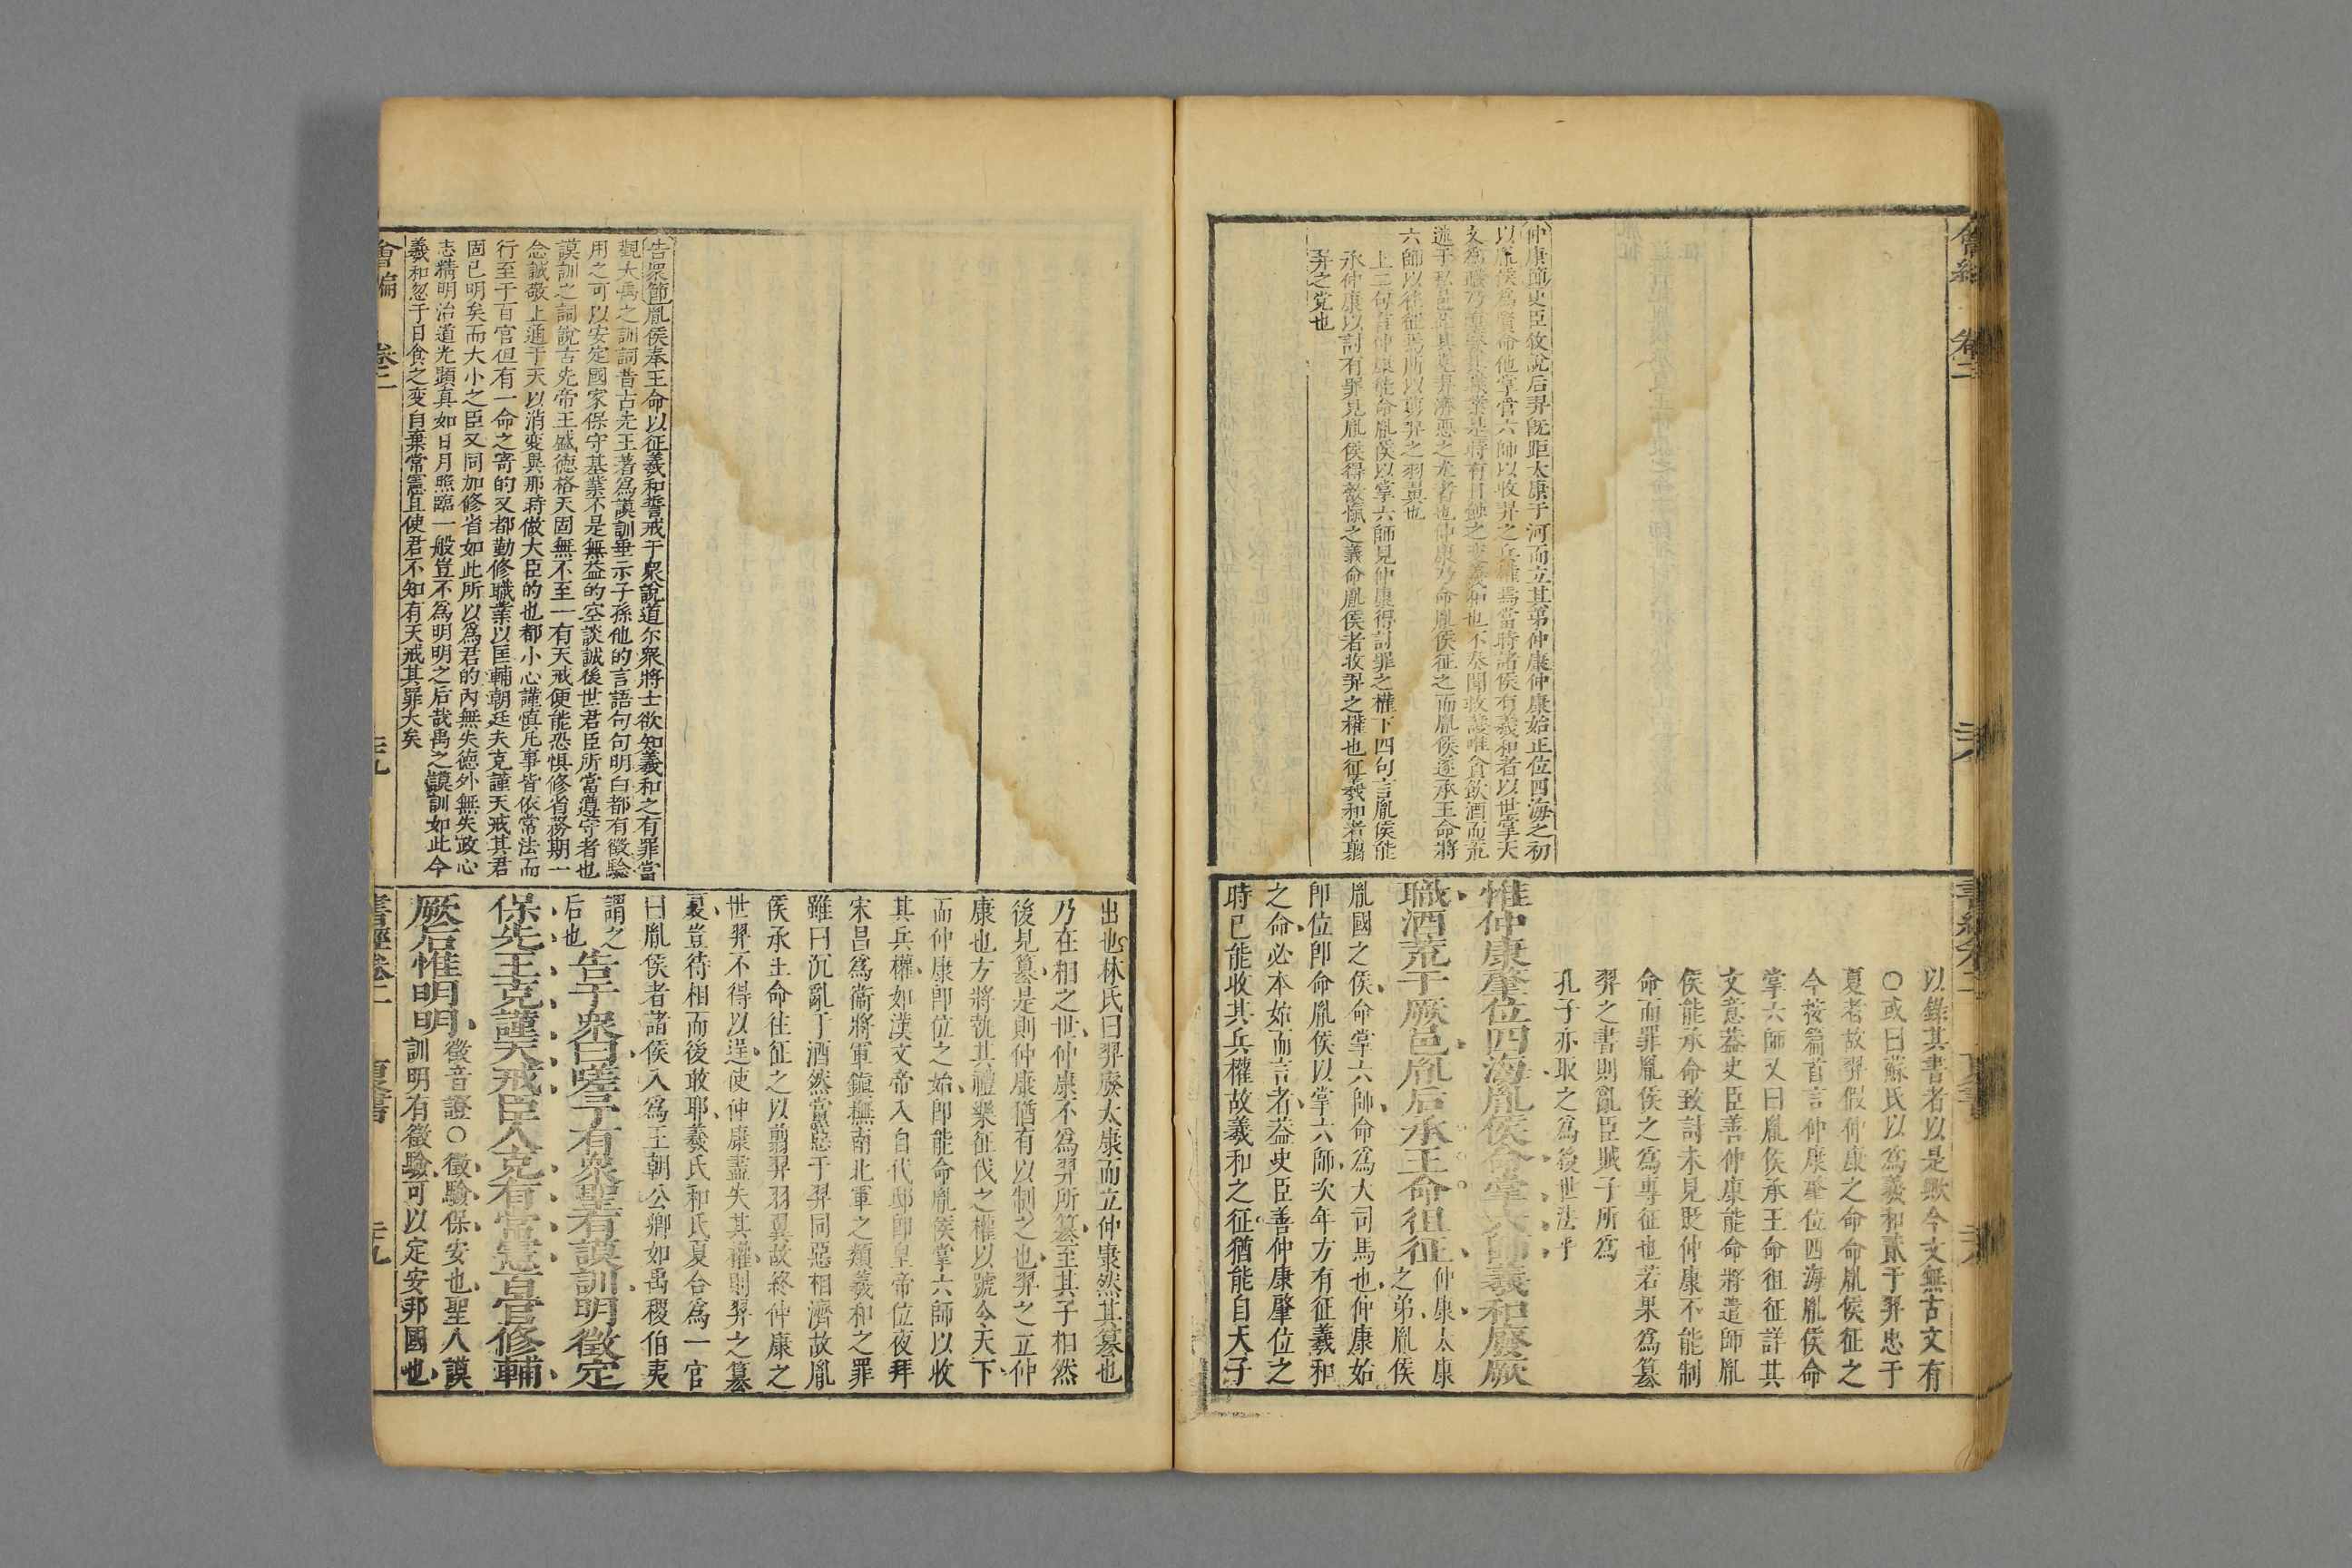 仲康節史臣敘說后羿旣距太康于河而立其弟仲康仲康始正位四海之初
以胤侯爲賢命他掌管六師以收羿之兵權焉當時諸侯有羲和者以世掌天
文爲職乃廢棄其職業是時有日蝕之變羲和也不奏聞救護唯貪飲酒而荒
迷于私邑此其黨羿濟惡之尤者也仲康乃命胤侯征之而胤侯遂承王命將
六師以往征焉所以剪羿之羽翼也
上三句言仲康徒命胤侯以掌六師見仲康得討罪之權下四句言胤侯能
承仲康以討有罪見胤侯得敵愾之義命胤侯者收羿之權也征羲和者剪
羿之党也
書經卷二 夏書 二十八
以錄其書者以是歟今文無古文有
○或曰蘇氏以爲羲和貳于羿忠于
夏者故羿假仲康之命命胤侯征之
今按篇首言仲康肇位四海胤侯命
掌六師又曰胤侯承王命徂征詳其
文意蓋史臣善仲康能命將遣師胤
侯能承命致討未見貶仲康不能制
命而罪胤侯之爲專征也若果爲篡
羿之書則亂臣賊子所爲
孔子亦取之爲後世法乎
惟仲康肇位四海胤侯命掌六師羲和廢厥
職酒荒于厥邑胤后承王命徂征仲康太康
之弟胤侯
胤國之侯命掌六師命爲大司馬也仲康始
卽位卽命胤侯以掌六師次年方有征羲和
之命必本始而言者蓋史臣善仲康肇位之
時已能收其兵權故羲和之征猶能自天子
告衆節胤侯奉王命以征羲和誓戒于衆說道尔衆將士欲知羲和之有罪當
觀大禹之訓詞昔古先王著爲謨訓垂示子孫他的言語句句明白都有徵驗
用之可以安定國家保守基業不是無益的空談誠後世君臣所當遵守者也
謨訓之詞說古先帝王盛德格天固無不至一有天戒便能恐惧修省務期一
念誠敬上通于天以消变異那時做大臣的也都小心謹慎凡事皆依常法而
行至于百官但有一命之寄的又都勤修職業以匡輔朝廷夫克謹天戒其君
固已明矣而大小之臣又同加修省如此所以爲君的內無失德外無失政心
志精明治道光顯真如日月照臨一般豈不爲明明之后哉禹之謨訓如此今
羲和忽于日食之变自棄常憲且使君不知有天戒其罪大矣
會編 卷二 二十九
出也林氏曰羿廢太康而立仲康然其篡也
乃在相之世仲康不爲羿所篡至其子相然
後見篡是則仲康猶有以制之也羿之立仲
康也方將執其禮樂征伐之權以號令天下
而仲康卽位之始卽能命胤侯掌六師以收
其兵權如漢文帝入自代邸卽皇帝位夜拜
宋昌爲衞將軍鎭撫南北軍之類羲和之罪
雖曰沉亂于酒然黨惡于羿同惡相濟故胤
侯承王命往征之以翦羿羽翼故終仲康之
世羿不得以逞使仲康盡失其權則羿之篡
夏豈待相而後敢耶羲氏和氏夏合爲一官
曰胤侯者諸侯入爲王朝公卿如禹稷伯夷
謂之
后也告于衆曰嗟予有衆聖有謨訓明徵定
保先王克謹天戒臣人克有常憲百官修輔
厥后惟明明徵音證○徵驗保安也聖人謨
訓明有徵驗可以定安邦國也
書經卷二 夏書 二十九